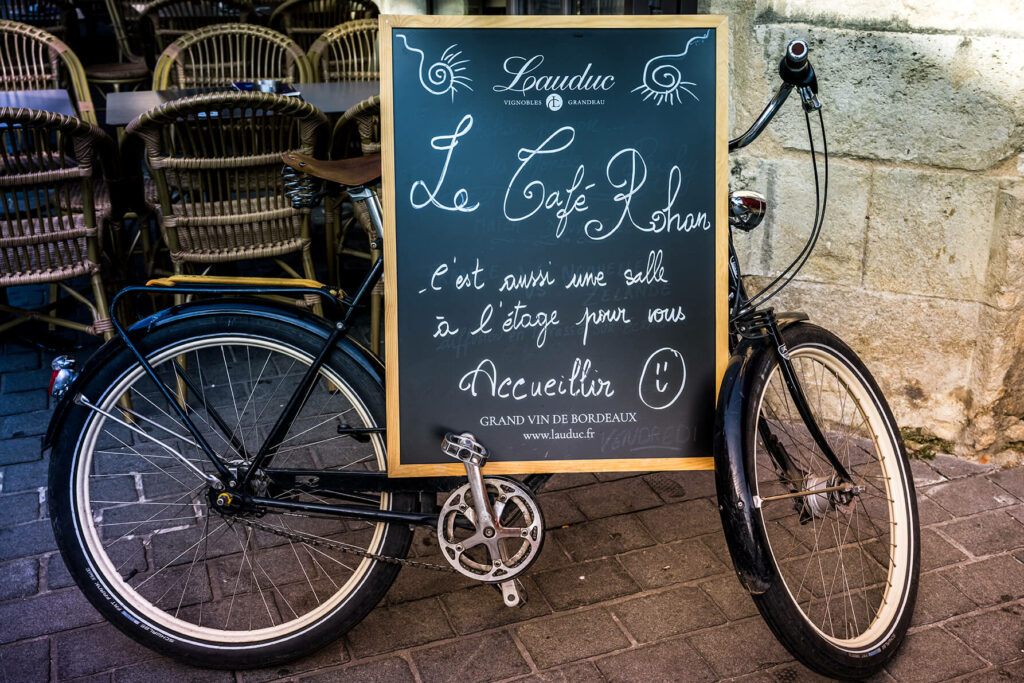 Lauduc
VIGNOBLES GRANDEAU
Le Café Rohan
C'est aussi une salle
à l'étage pour vous
Accueillir
GRAND VIN DE BORDEAUX
www.lauduc.fr
VENDREDI